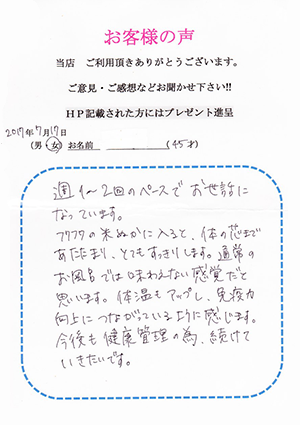 お客様の声
当店 ご利用頂きありがとうございます。
ご意見・ご感想などお聞かせ下さい!!
HP記載された方にはプレゼント進呈
2017年7月17日
(男・女) お名前 (45才)
週1〜2回のペースでお世話に
なっています。
フワフワの米ぬかに入ると、体の芯まで
あたたまり、とてもすっきりします。通常の
お風呂では味わえない感覚だと
思います。体温もアップし、免疫力
向上につながっているように感じます。
今後も健康管理の為、続けて
いきたいです。